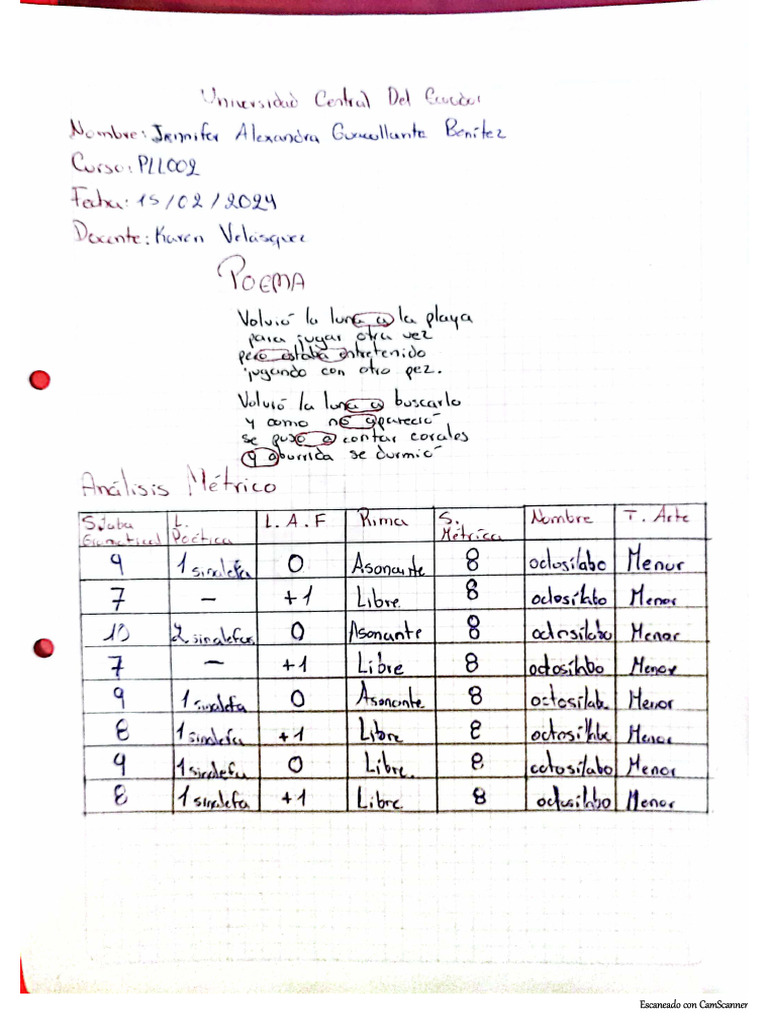 Universidad Central Del Ecuador
Nombre: Jennifer Alexandra Benítez
Curso: PLL002
Fecha: 15/02/2024
Docente: Karen Velásquez
POEMA
Volvió la luna a la playa
para jugar otra vez
pero estaba entretenido
jugando con otro pez.
Volvió la luna a buscarlo
y como no apareció
se puso a contar corales
y aburrida se durmió
Análisis Métrico
Sílaba Gramatical L. Poética L.A.F Rima S. Métrica Nombre T. Arte
9 1 sinalefa 0 Asonante 8 octosílabo Menor
7 – +1 Libre 8 octosílabo Menor
10 2 sinalefas 0 Asonante 8 octosílabo Menor
7 – +1 Libre 8 octosílabo Menor
9 1 sinalefa 0 Asonante 8 octosílab Menor
8 1 sinalefa +1 Libre 8 octosílabo Menor
9 1 sinalefa 0 Libre. 8 octosílabo Menor
8 1 sinalefa +1 Libre 8 octosílabo Menor
Escaneado con CamScanner